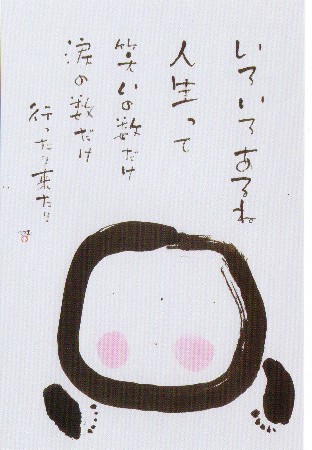 いろいろあるね
人生って
笑いの数だけ
涙の数だけ
行ったり来たり